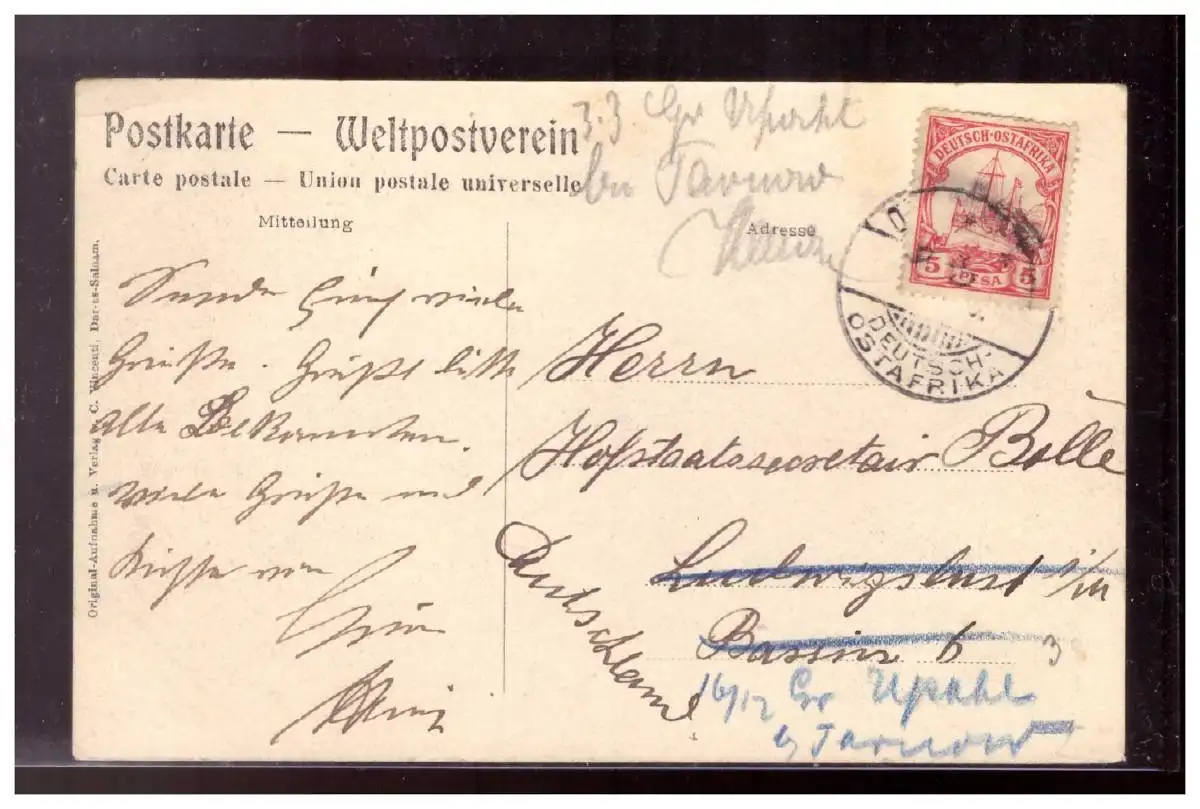 Postkarte — Weltpostverein
Carte postale — Union postale universelle
Mitteilung
Adresse
Original-Aufnahme u. Verlag v. C. Vincenti, Dar-es-Salaam.
3.3 Gr Upahl
bei Tarnow
DEUTSCH-OSTAFRIKA
5 PESA 5
DEUTSCH-
OSTAFRIKA
viele
Grüße. Grüße bitte
alle Bekannten.
Viele Grüße und
Küsse von
Herrn
Hofstaatssecretair Bolle
Ludwigslust i/M
Bassin 6
3
Deutschland
16/12 Gr Upahl
b/ Tarnow